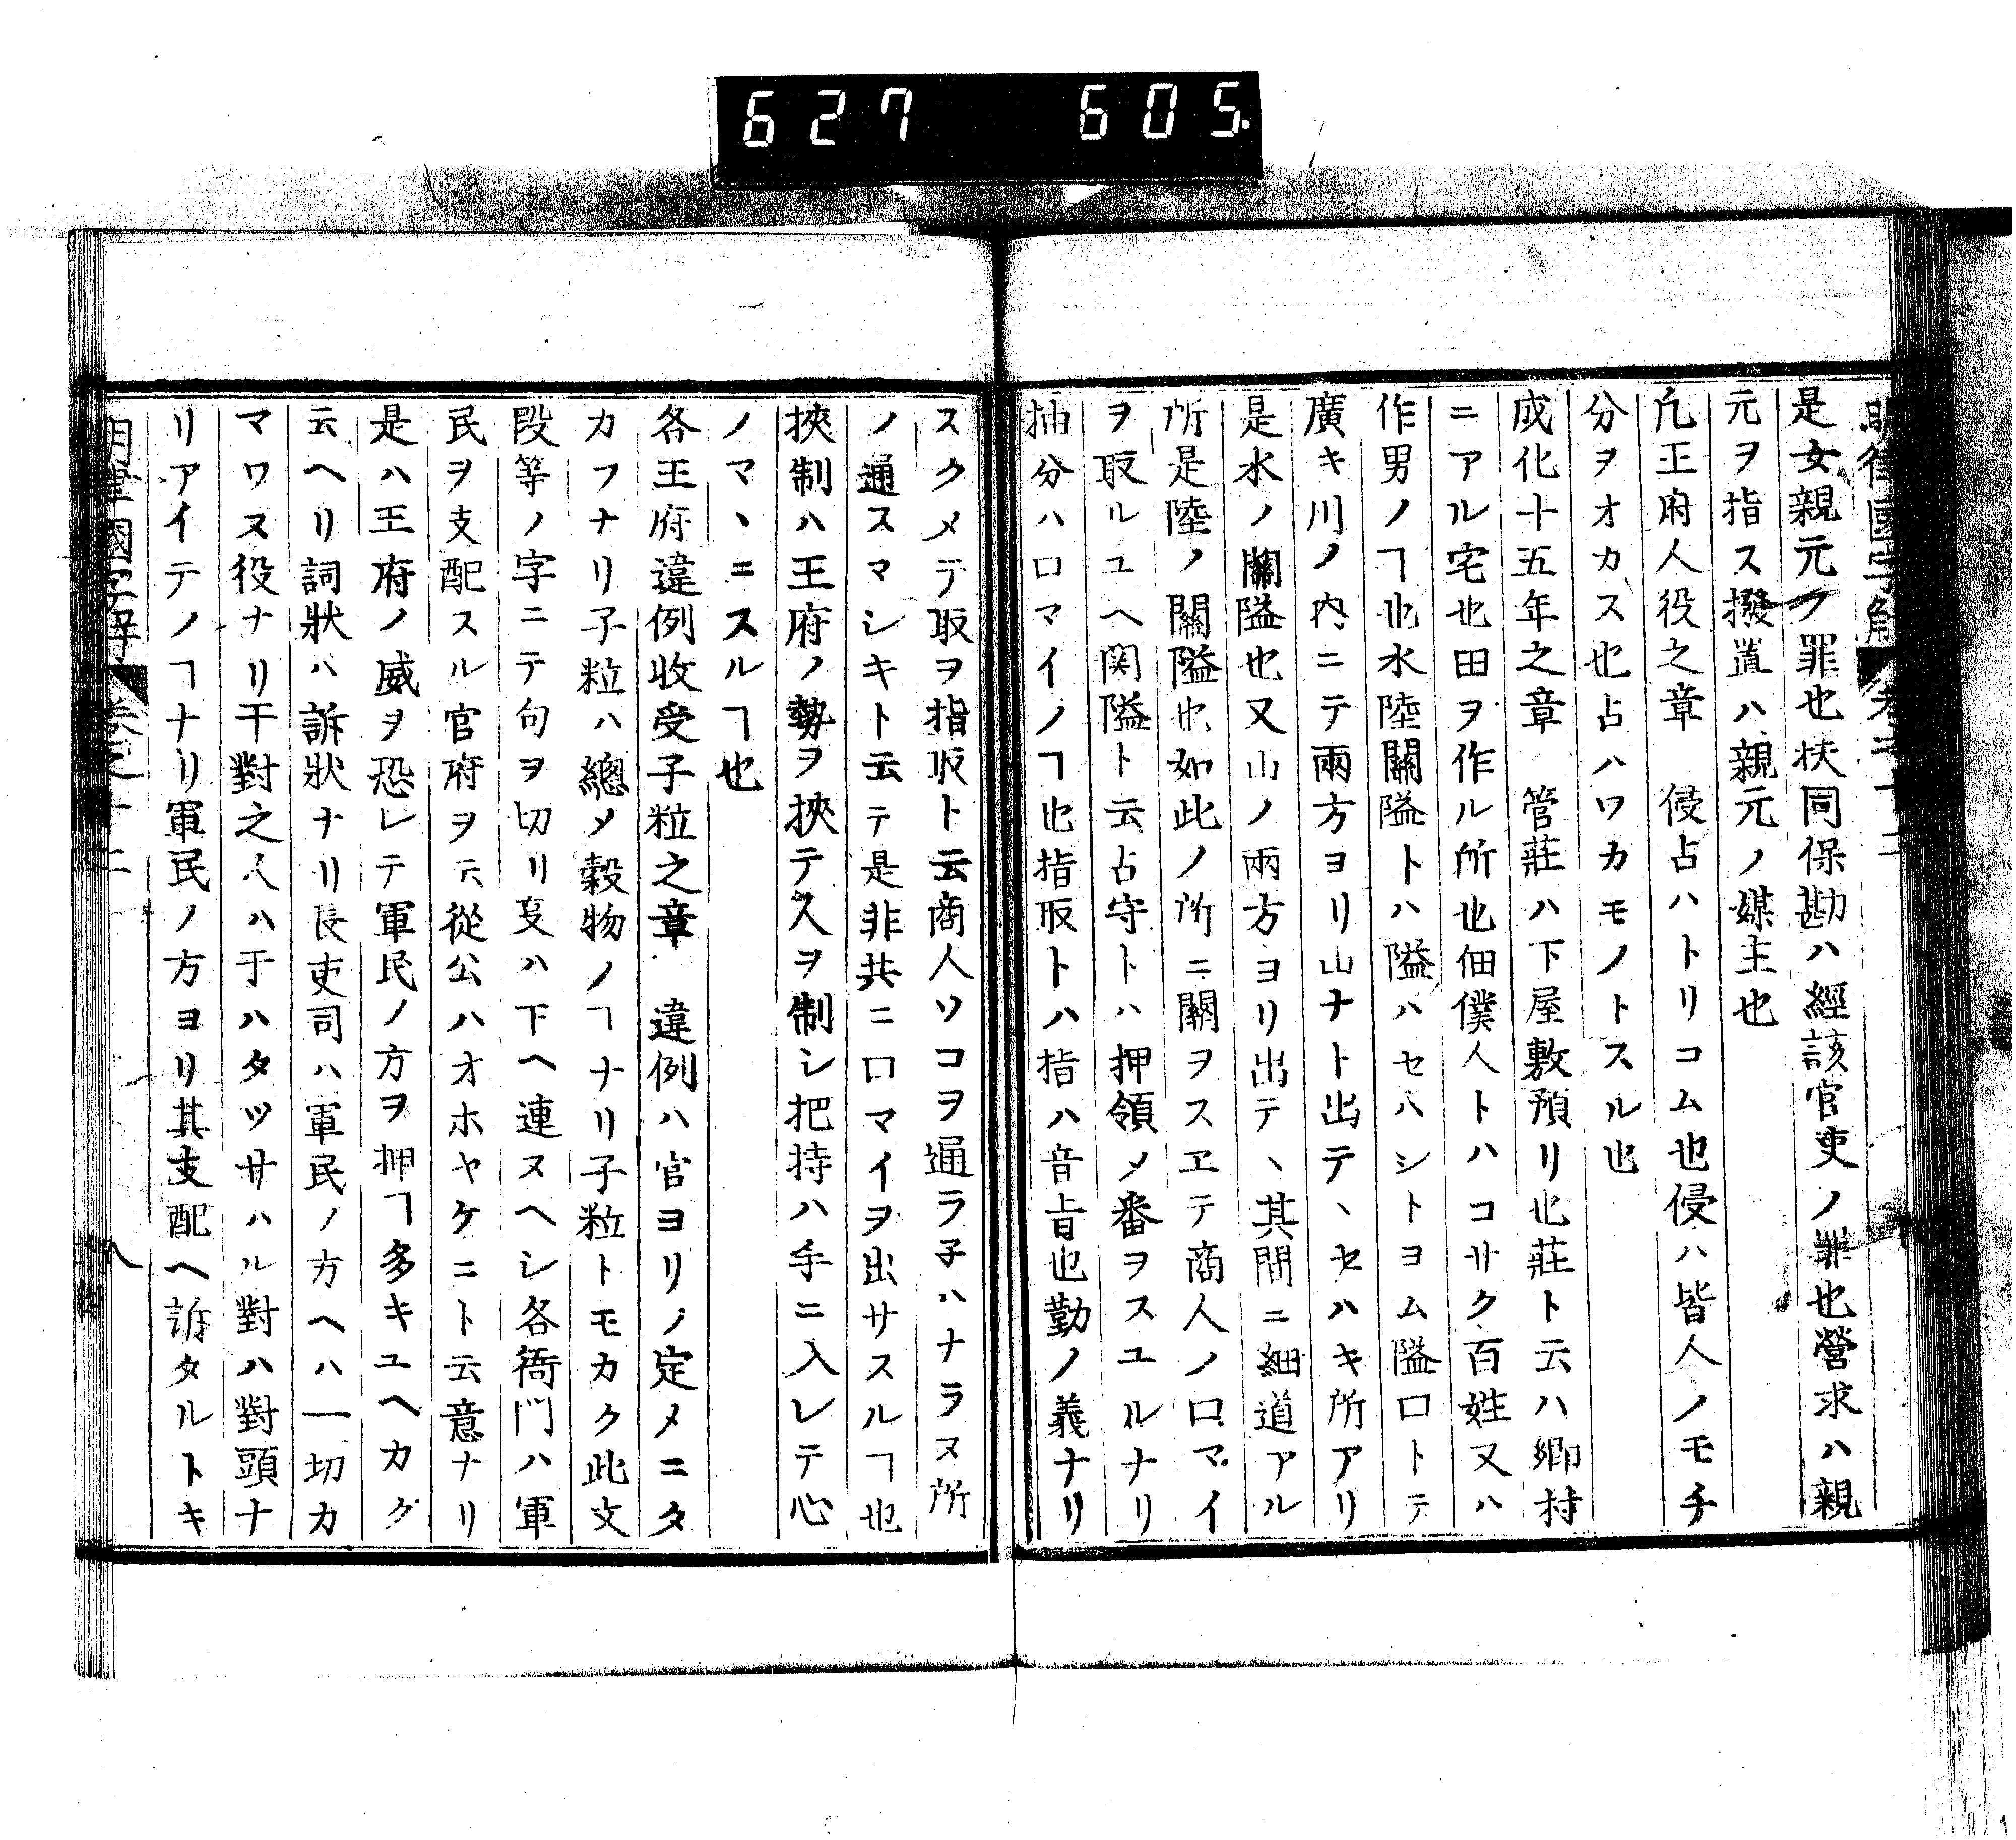 627 605
明律國字解 卷之十二
是女親元ノ罪也扶同保勘ハ經該官吏ノ罪也營求ハ親
元ヲ指ス撥置ハ親元ノ媒主也
凢王府人役之章 侵占ハトリコム也侵ハ皆人ノモチ
分ヲオカス也占ハワカモノトスル也
成化十五年之章 管莊ハ下屋敷預リ也莊ト云ハ鄉村
ニアル宅也田ヲ作ル所也佃僕人トハコサク百姓又ハ
作男ノヿ也水陸關隘トハ隘ハセハシトヨム隘口トテ
廣キ川ノ内ニテ兩方ヨリ山ナト出テヽセハキ所アリ
是水ノ關隘也又山ノ兩方ヨリ出テヽ其間ニ細道アル
所是陸ノ關隘也如此ノ所ニ關ヲスヱテ商人ノ口マイ
ヲ取ルユヘ関隘ト云占守トハ押領メ番ヲスユルナリ
抽分ハ口マイノヿ也指取トハ指ハ音旨也勤ノ義ナリ
スクメテ取ヲ指取ト云商人ソコヲ通ラ子ハナラヌ所
ノ通スマシキト云テ是非共ニ口マイヲ出サスルヿ也
挾制ハ王府ノ勢ヲ挾テ人ヲ制シ把持ハ手ニ入レテ心
ノマヽニスルヿ也
各王府違例收受子粒之章 違例ハ官ヨリノ定メニタ
カフナリ子粒ハ總メ穀物ノヿナリ子粒トモカク此文
段等ノ字ニテ句ヲ切リ㕝ハ下ヘ連ヌヘシ各衙門ハ軍
民ヲ支配スル官府ヲ云從公ハオホヤケニト云意ナリ
是ハ王府ノ威ヲ恐レテ軍民ノ方ヲ押ヿ多キユヘカク
云ヘリ詞狀ハ訴狀ナリ長吏司ハ軍民ノ方ヘハ一切カ
マワヌ役ナリ干對之人ハ干ハタツサハル對ハ對頭ナ
リアイテノヿナリ軍民ノ方ヨリ其支配ヘ訴タルトキ
明律國字解 卷之十二